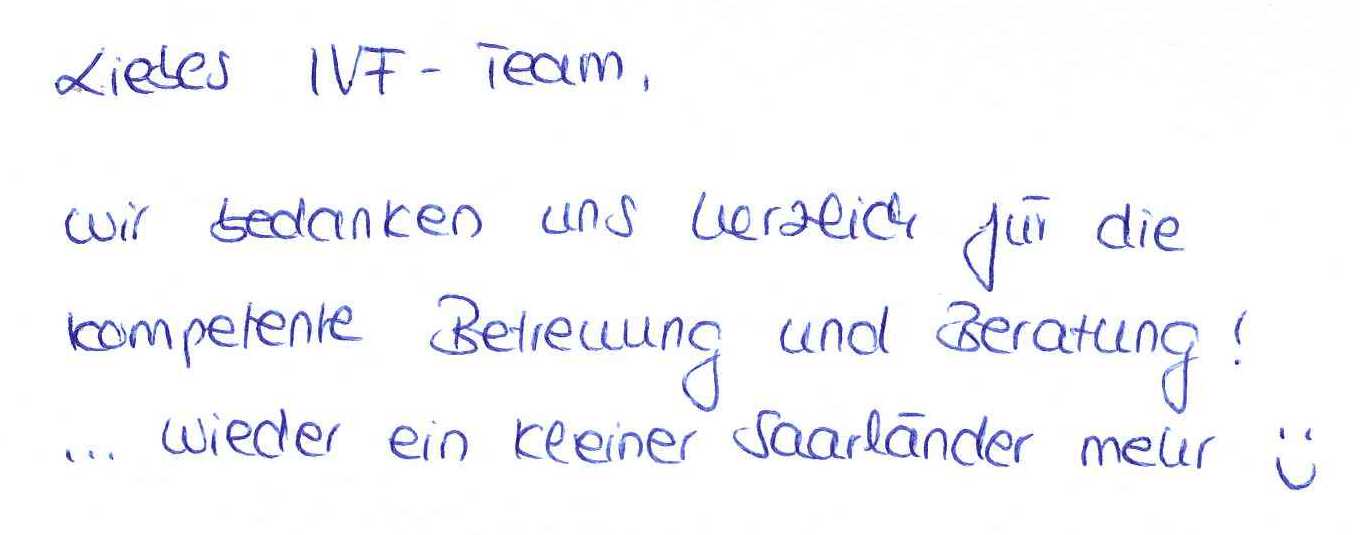 Liebes IVF - Team,
wir bedanken uns herzlich für die
kompetente Betreuung und Beratung!
... wieder ein kleiner Saarländer mehr :)